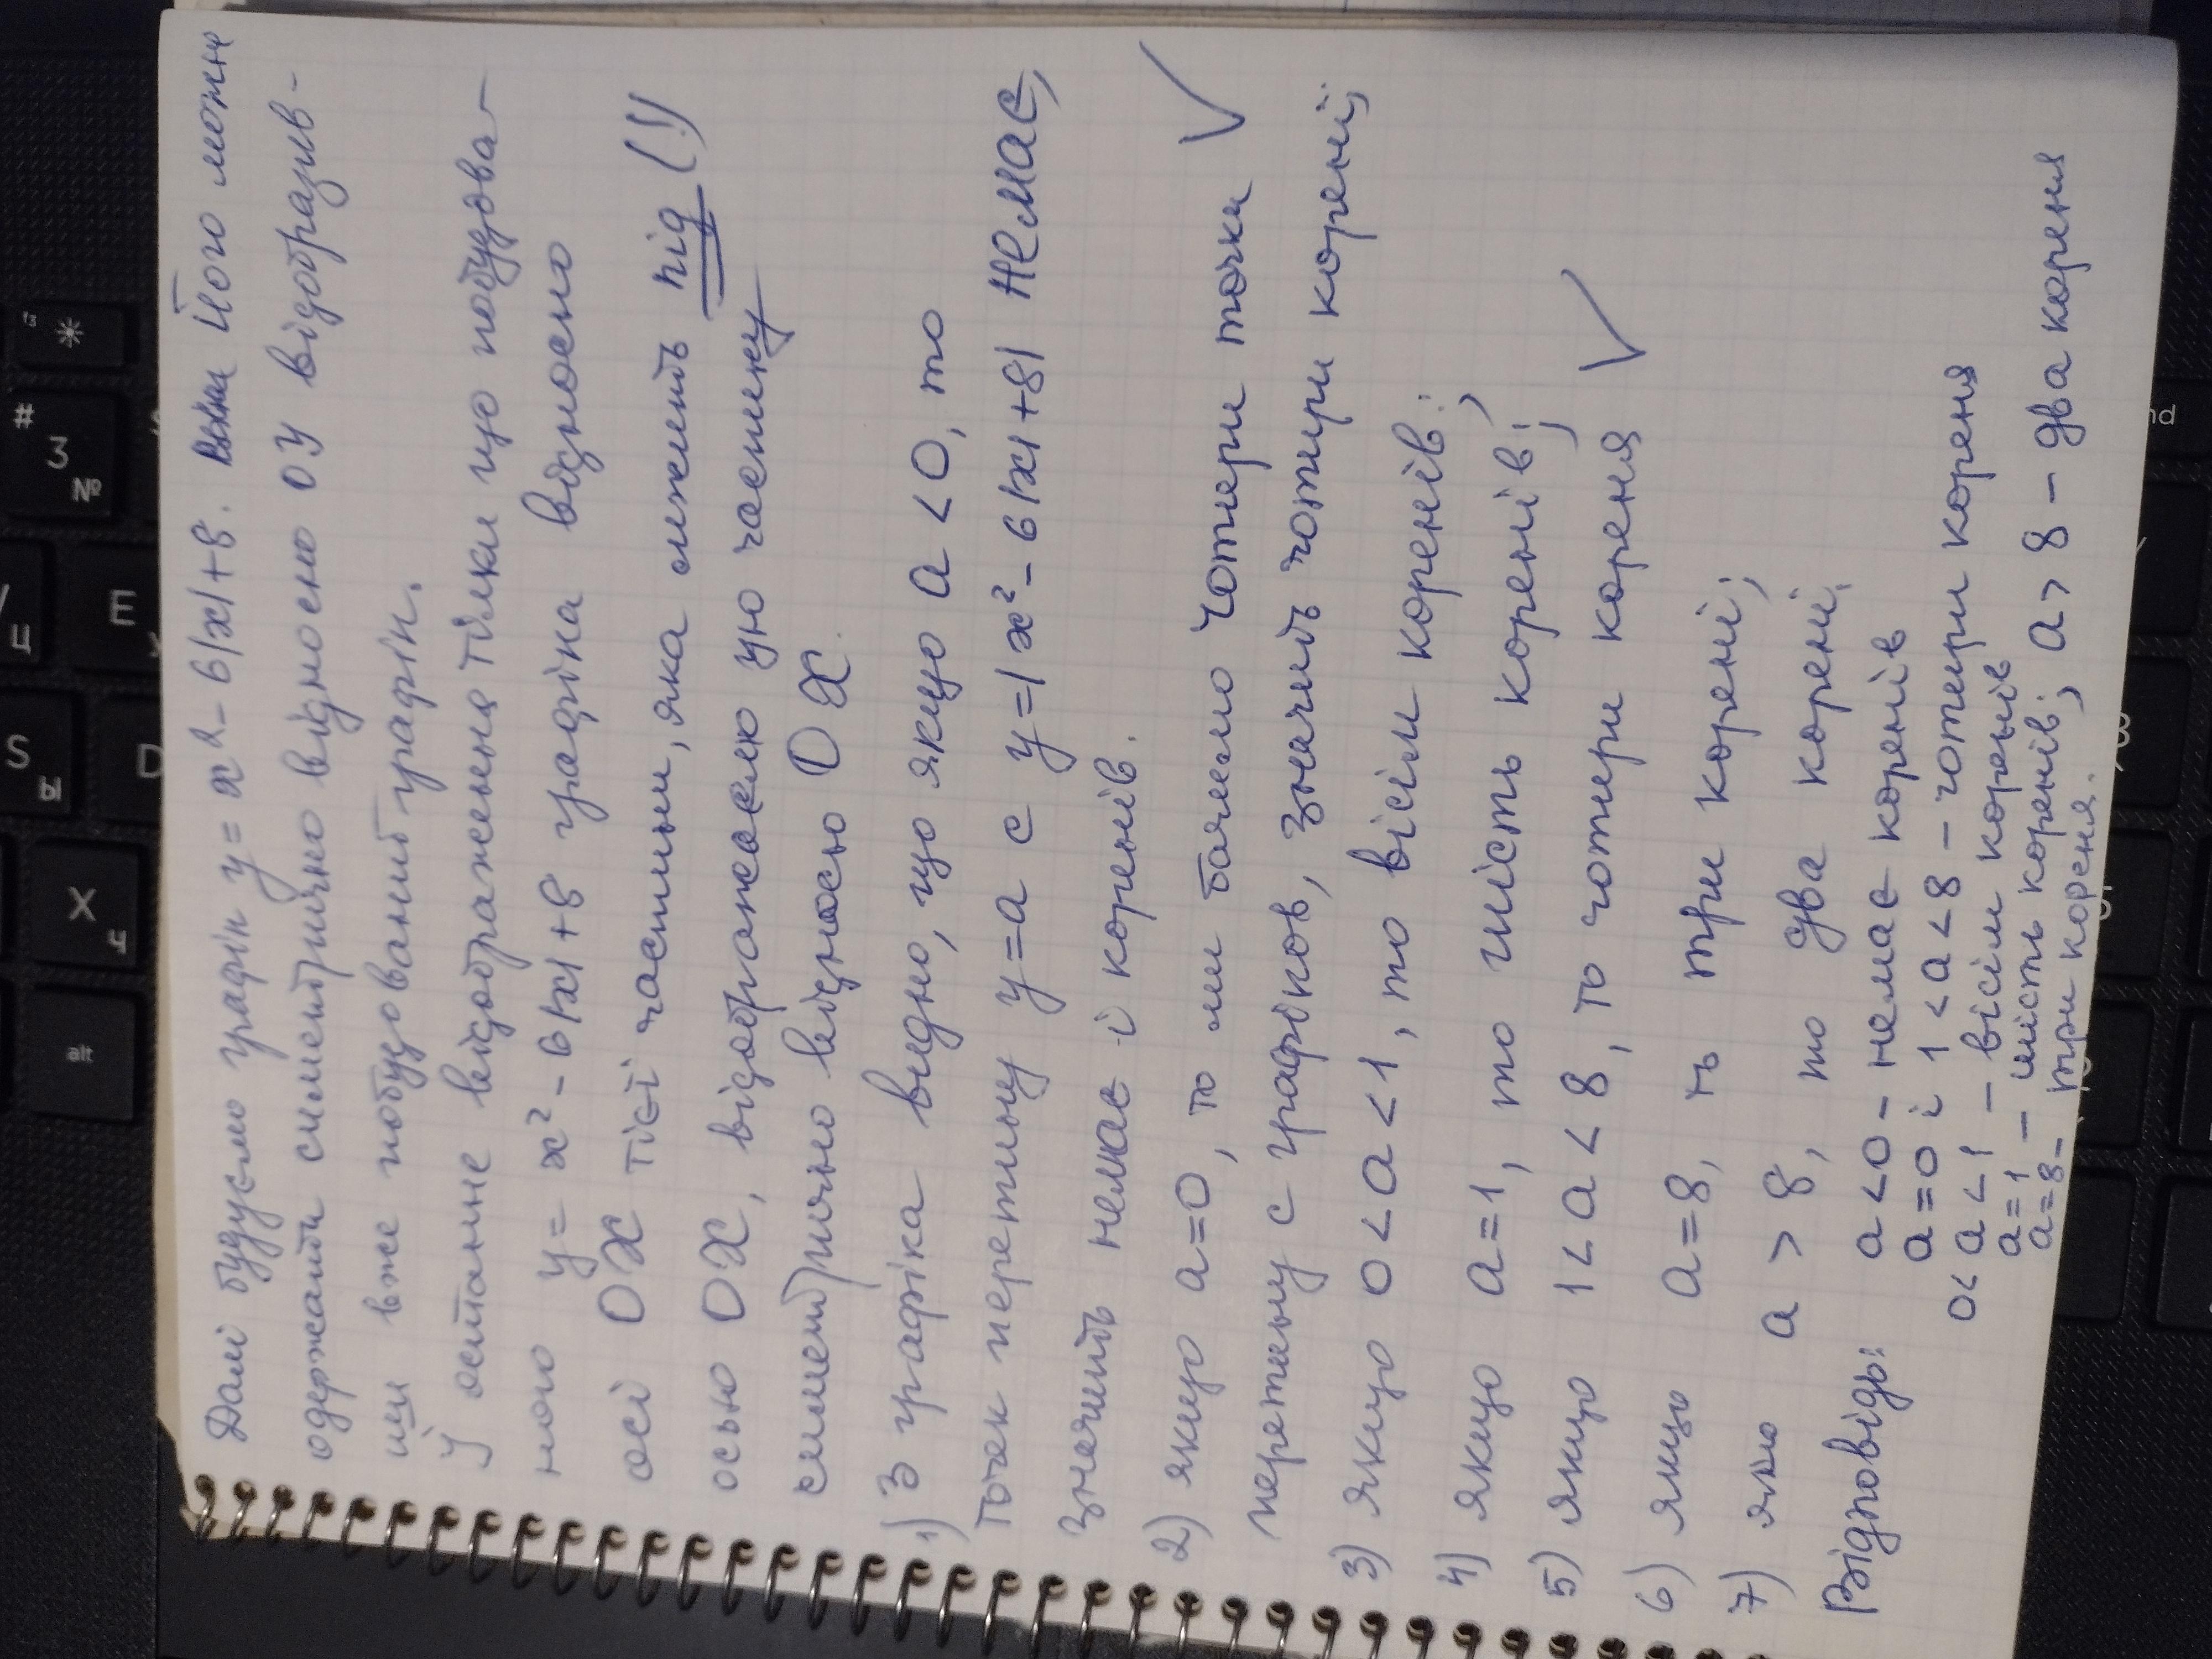 Далі будуємо графік y = x² - 6|x| + 8. Його можне
одержати симметрично відносно OY відобразив-
ши вже побудований графік.
У останнє відображена тільки що побудова-
ного y = x² - 6|x| + 8 графіка відносено
осі OX тієї частини, яка лежить під (!)
осью OX, відображаємо ую частину
симетрично відносью OX.
1) З графіка видно, що якщо a < 0, то
точок перетину y=a с y=|x² - 6|x| + 8| немає,
значить немає і коренів.
2) якщо a=0, то ми бачимо чотери точки
перетину с графіков, значить чотири корені;
3) якщо 0 < a < 1, то вісім коренів;
4) якщо a=1, то шість коренів;
5) якщо 1 < a < 8, то чотири кореня
6) якщо a=8, то три корені;
7) якщо a > 8, то два корені.
Відповідь: a < 0 - немає коренів
a = 0 і 1 < a < 8 - чотири кореня
0 < a < 1 - вісім коренів
a = 1 - шість коренів; a > 8 - два кореня
a = 8 - три кореня.
*
#
3
№
E
S
D
X
Ч
alt